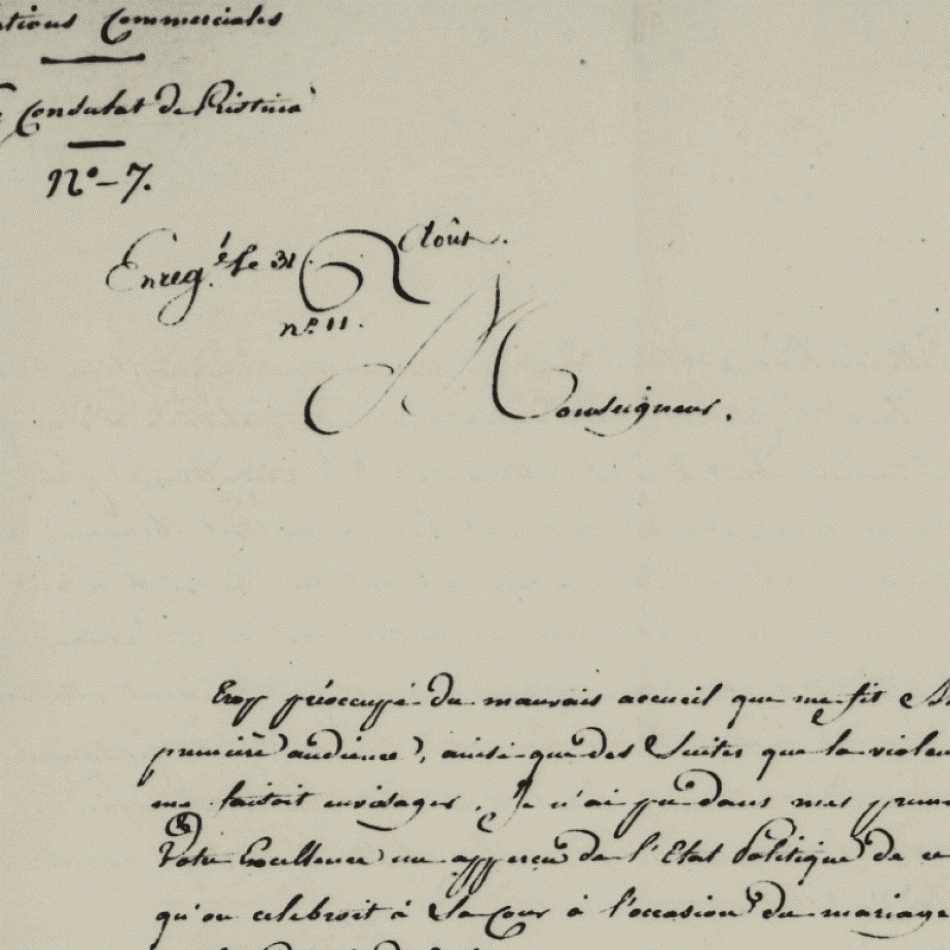 ations Commerciales
Consulat de Pristina
N.° - 7.
Enreg.é le 31. Août.
n.° 11.
Monseigneur.
Trop préoccupé du mauvais accueil que me fit
première audience, ainsi que des Suites que la violen
me faisoit envisager. Je n'ai pu dans mes premi
à Votre Excellence un apperçu de l'Etat Politique de ce
qu'on celebroit à La Cour à l'occasion du mariage